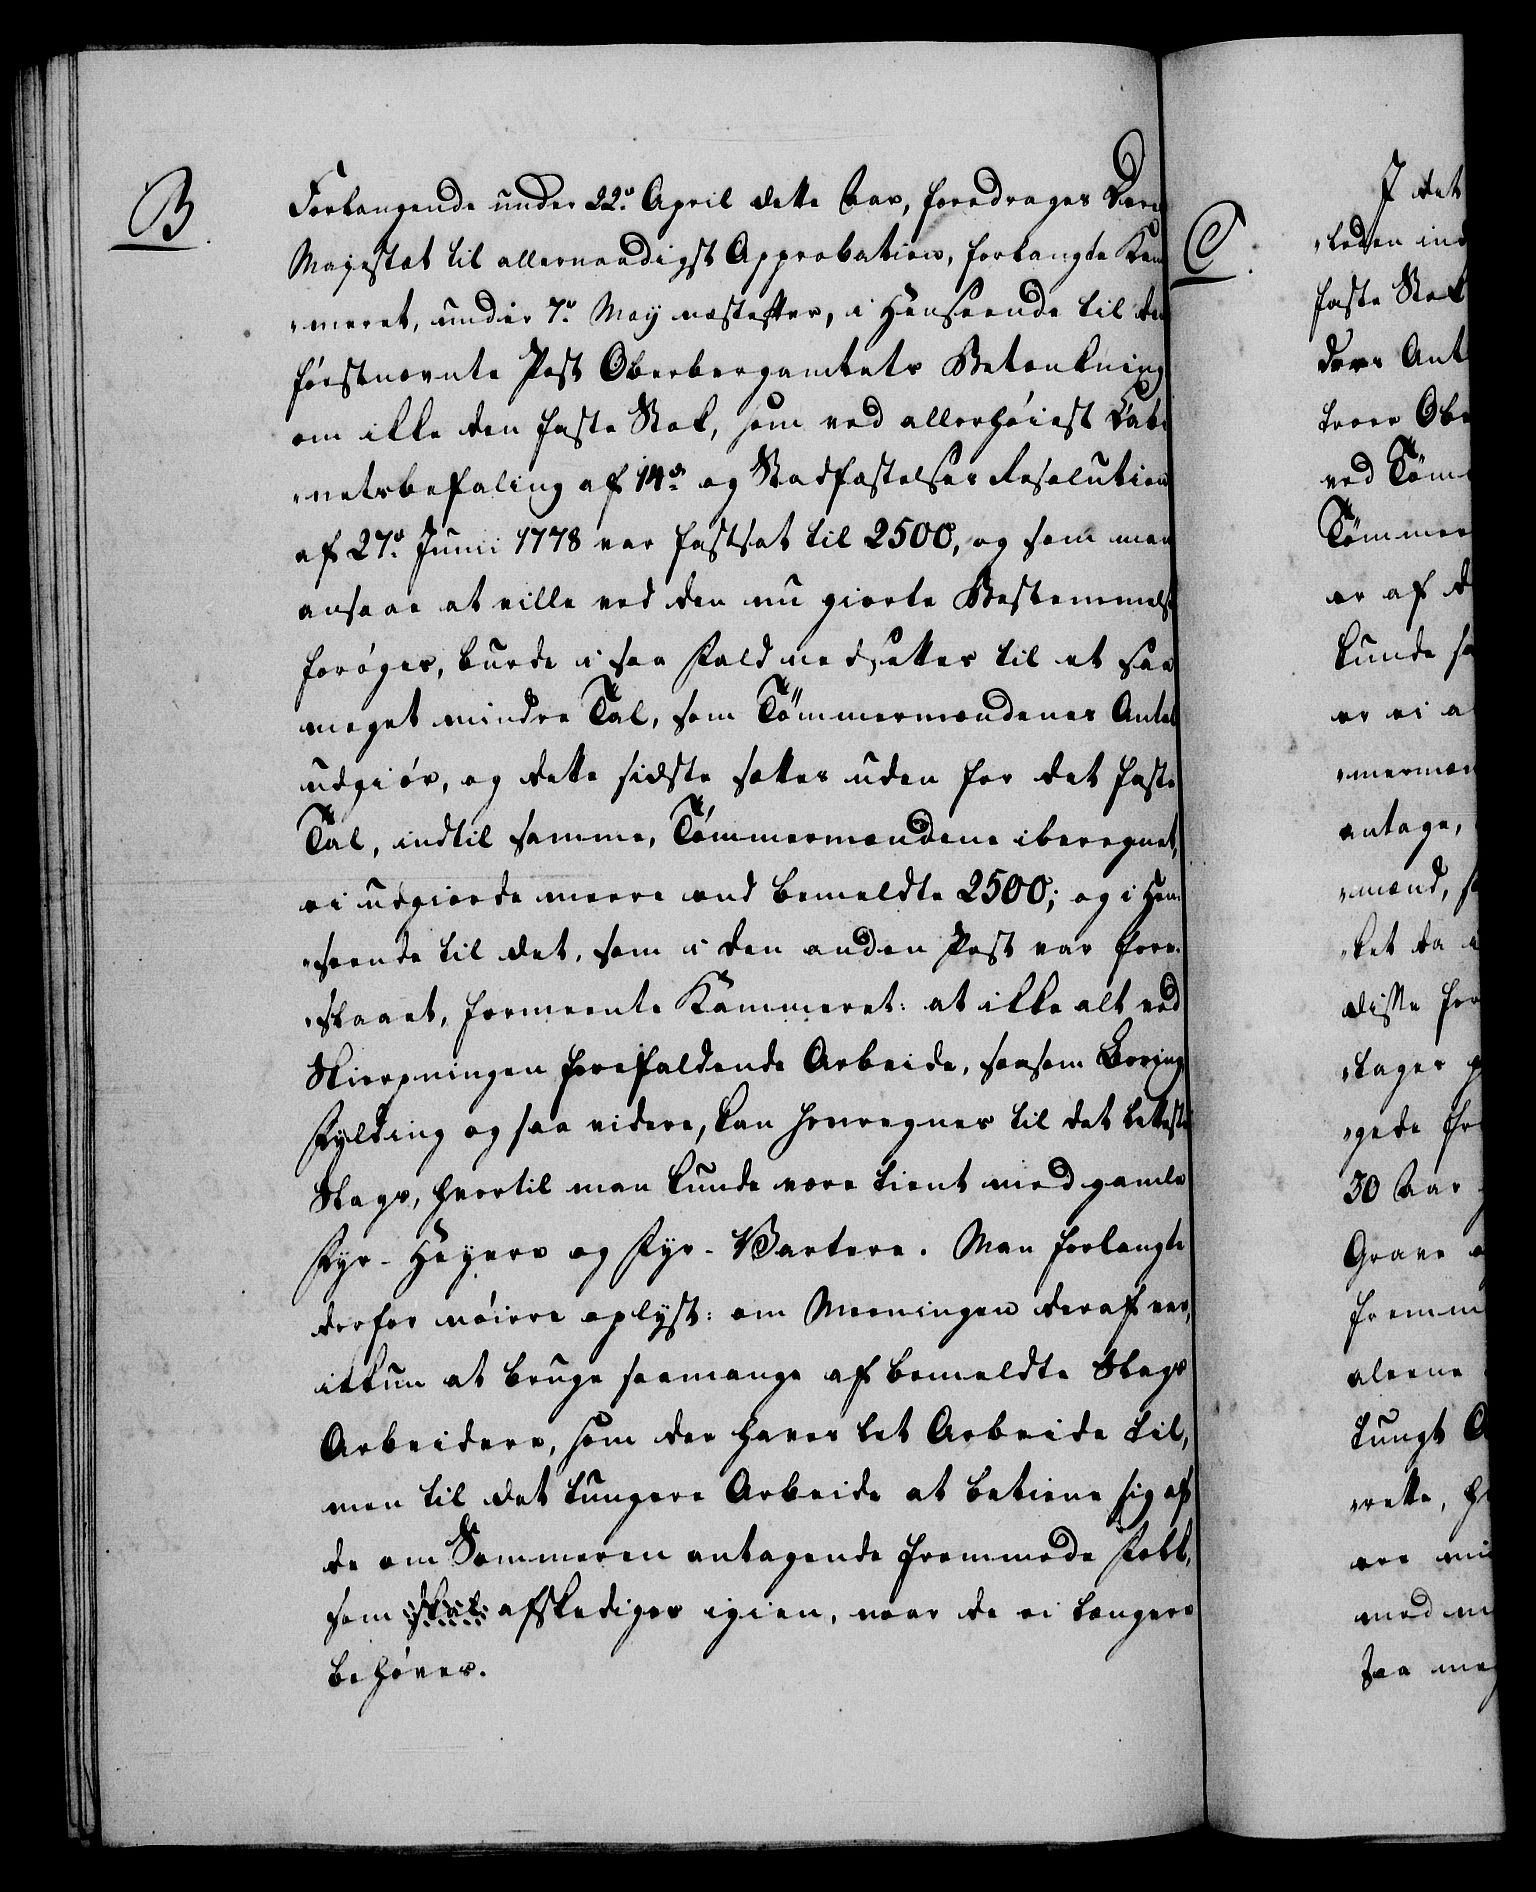 B.
Forlangende under 22de April dette Aar, foredrages Deres
Majestæt til allernaadigst Approbation, forlangte Kam¬
„meret, under 7de May næstefter, i Henseende til den
förstnævnte Post Oberbergamtets Betænkning
om ikke den faste Stok, som ved allerhöiest Cabi¬
„netsbefaling af 14de og Stadfæstelses Resolution
af 27de Junii 1778 var fastsat til 2500, og som man
ansaae at ville ved den nu giorte Bestemmelse
forøges, burde i saa Fald nedsættes til et saa
meget mindre Tal, som Tömmermændenes Antal
udgiör, og dette sidste sættes uden for det faste
Tal, indtil samme, Tömmermændene iberegnet,
ei udgiorde meere end bemeldte 2500; og i Hen¬
„seende til det, som i den anden Post var fore¬
„slaaet, formeente Kammeret: at ikke alt ved
Skierpningen forefaldende Arbeide, saasom Boring
Fylding og saa videre, kan henregnes til det letteste
Slags, hvortil man kunde være tient med gamle
Fyr-Heyere og Fyr-Vartere. Man forlangte
derfor nöiere oplyst: om Meeningen deraf var,
ikkun at bruge saamange af bemeldte Slags
Arbeidere, som der haves let Arbeide til,
men til det tungere Arbeide at betiene sig af
de om Sommeren antagende fremmede Folk,
som skal afskediges igien, naar de ei længere
behöves.
C.
I det
„leden ind
faste Stok
deres Ant
troer Obe
ved Tömm
Tömmer
er af d
kunde sa
er ei a
„mermæn
antage,
„mænd, s
„ket da
disse for
„tager
„gede for
30 Aar
Grave
fremm
aleene
tungt A
„rette, h
ere mi
med m
saa meg